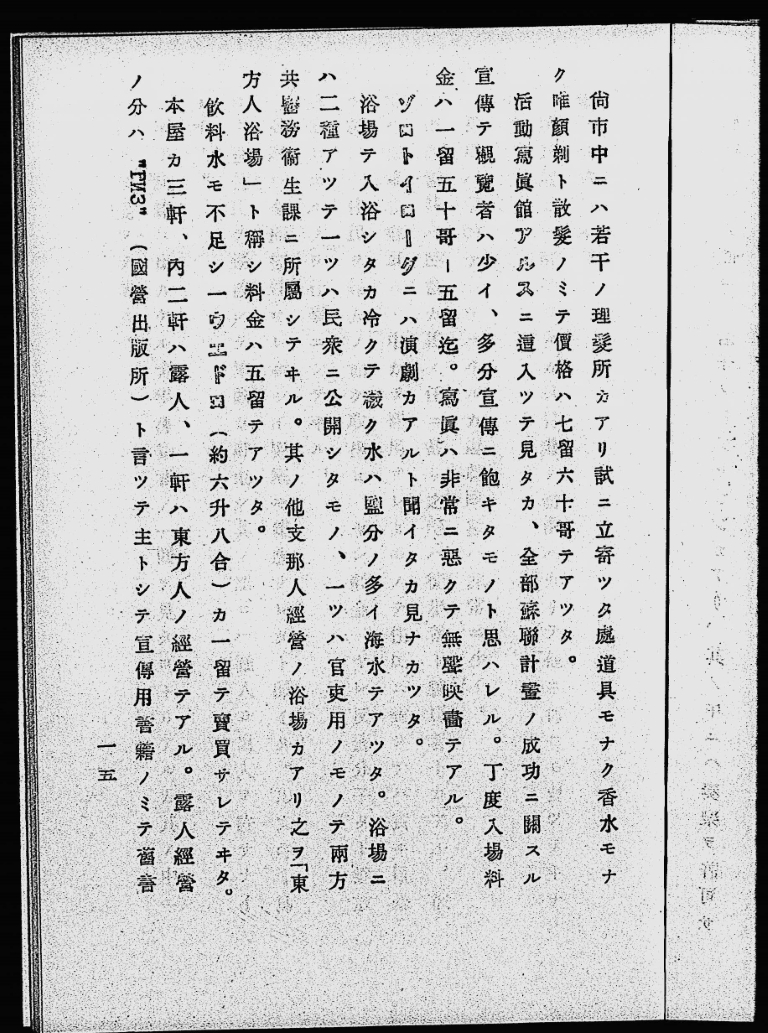 尙市中ニハ若干ノ理髮所カアリ試ニ立寄ツタ處道具モナク香水モナ
ク唯顏剃ト散髮ノミテ價格ハ七留六十哥テアツタ。
活動寫眞館アルスニ這入ツテ見タカ、全部蘇聯計畫ノ成功ニ關スル
宣傳テ觀覽者ハ少イ、多分宣傳ニ飽キタモノト思ハレル。丁度入場料
金ハ一留五十哥ー五留迄。寫眞ハ非常ニ惡クテ無聲映畵テアル。
ゾロトイローグニハ演劇カアルト聞イタカ見ナカツタ。
浴場テ入浴シタカ冷クテ穢ク水ハ鹽分ノ多イ海水テアツタ。浴場ニ
ハ二種アツテ一ツハ民衆ニ公開シタモノ、一ツハ官吏用ノモノテ兩方
共醫務衞生課ニ所屬シテヰル。其ノ他支那人經營ノ浴場カアリ之ヲ「東
方人浴場」ト稱シ料金ハ五留テアツタ。
飮料水モ不足シ一ウエドロ(約六升八合)カ一留テ賣買サレテヰタ。
本屋カ三軒、內二軒ハ露人、一軒ハ東方人ノ經營テアル。露人經營
ノ分ハ "ГИЗ" (國營出版所)ト言ツテ主トシテ宣傳用書籍ノミテ舊書
一五